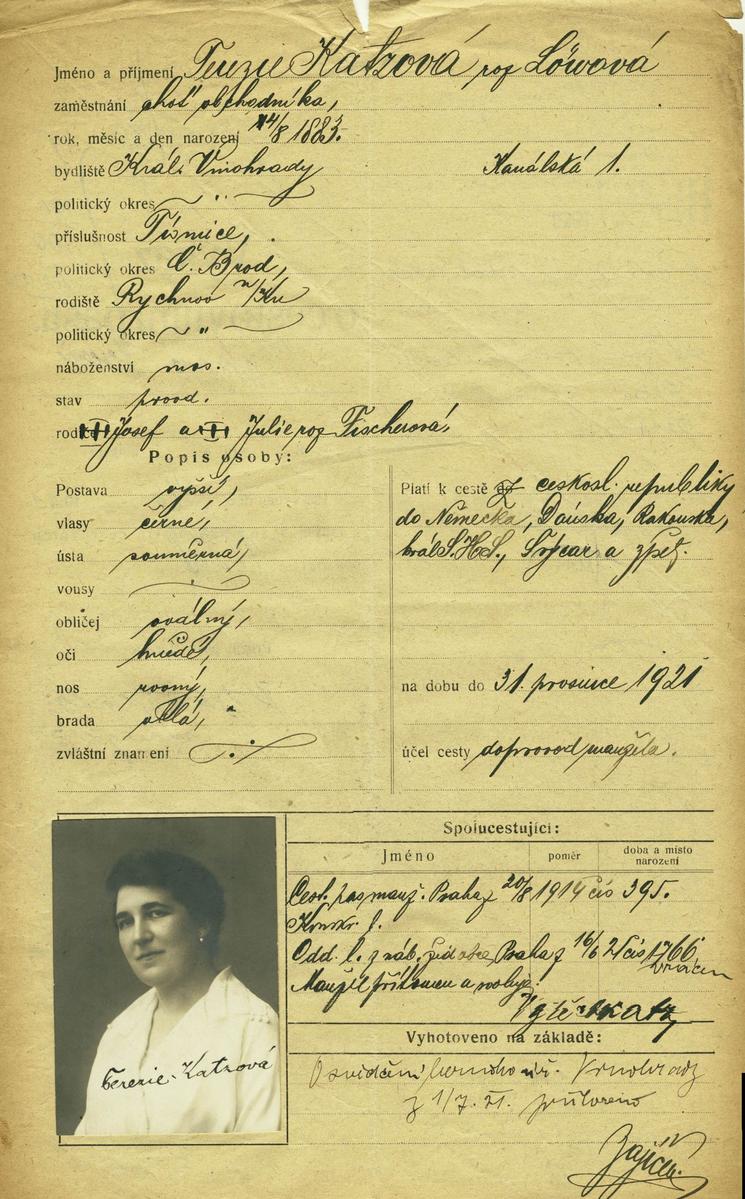 Jméno a příjmení Terezie Katzová roz Löwová
zaměstnání choť obchodníka,
rok, měsíc a den narození 14/8 1883.
bydliště Král. Vinohrady Kanálská 1.
politický okres "
příslušnost Tismice,
politický okres Č. Brod,
rodiště Rychnov n/Kn
politický okres "
náboženství mos.
stav provd.
rodiče Josef a Julie roz Fischerová,
Popis osoby:
Postava vyšší,
vlasy černé,
ústa souměrná,
vousy
obličej oválný,
oči hnědé,
nos rovný,
brada oblá,
zvláštní znamení
Platí k cestě z českosl. republiky
do Německa, Dánska, Rakouska,
král. S.H.S., Švýcar a zpět.
na dobu do 31. prosince 1921
účel cesty doprovod manžela.
Spolucestující:
Jméno poměr doba a místo narození
Cest. pas manž. Praha z 20/8 1919 čís 395.
Konskr. l.
Odd. l. z náb. žid obce Praha z 16/6 21 čís 1766
vrácen
Manžel přítomen a svoluje.
Katz
Vyhotoveno na základě:
Osvědčení berního úř. Vinohrady
z 1/7. 21. potvrzeno
Zajíček
Terezie Katzová